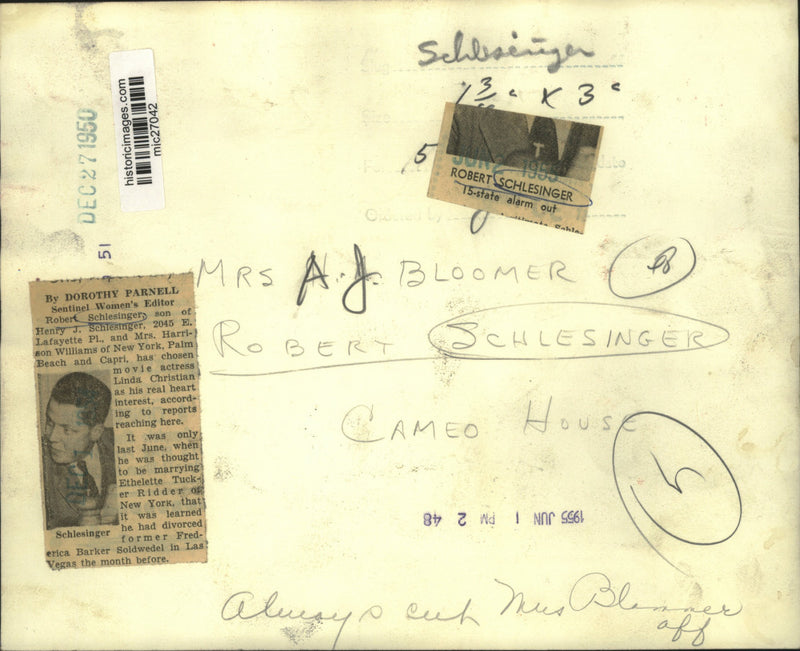 Schlesinger
1 3/ " X 3 "
Size
5
JUN 2 1955
date
ROBERT SCHLESINGER
15-state alarm out
Ordered by
DEC 27 1950
51
historicimages.com
mic27042
MRS A.J. BLOOMER
ROBERT SCHLESINGER
CAMEO HOUSE
5
1955 JUN 1 PM 2 48
Always cut Mrs Bloomer
off
By DOROTHY PARNELL
Sentinel Women's Editor
Robert Schlesinger, son of
Henry J. Schlesinger, 2045 E.
Lafayette Pl., and Mrs. Harri-
son Williams of New York, Palm
Beach and Capri, has chosen
movie actress
Linda Christian
as his real heart
interest, accord-
ing to reports
reaching here.
It was only
last June, when
he was thought
to be marrying
Ethelette Tuck-
er Ridder of
New York, that
it was learned
he had divorced
former Fred-
erica Barker Soldwedel in Las
Vegas the month before.
Schlesinger